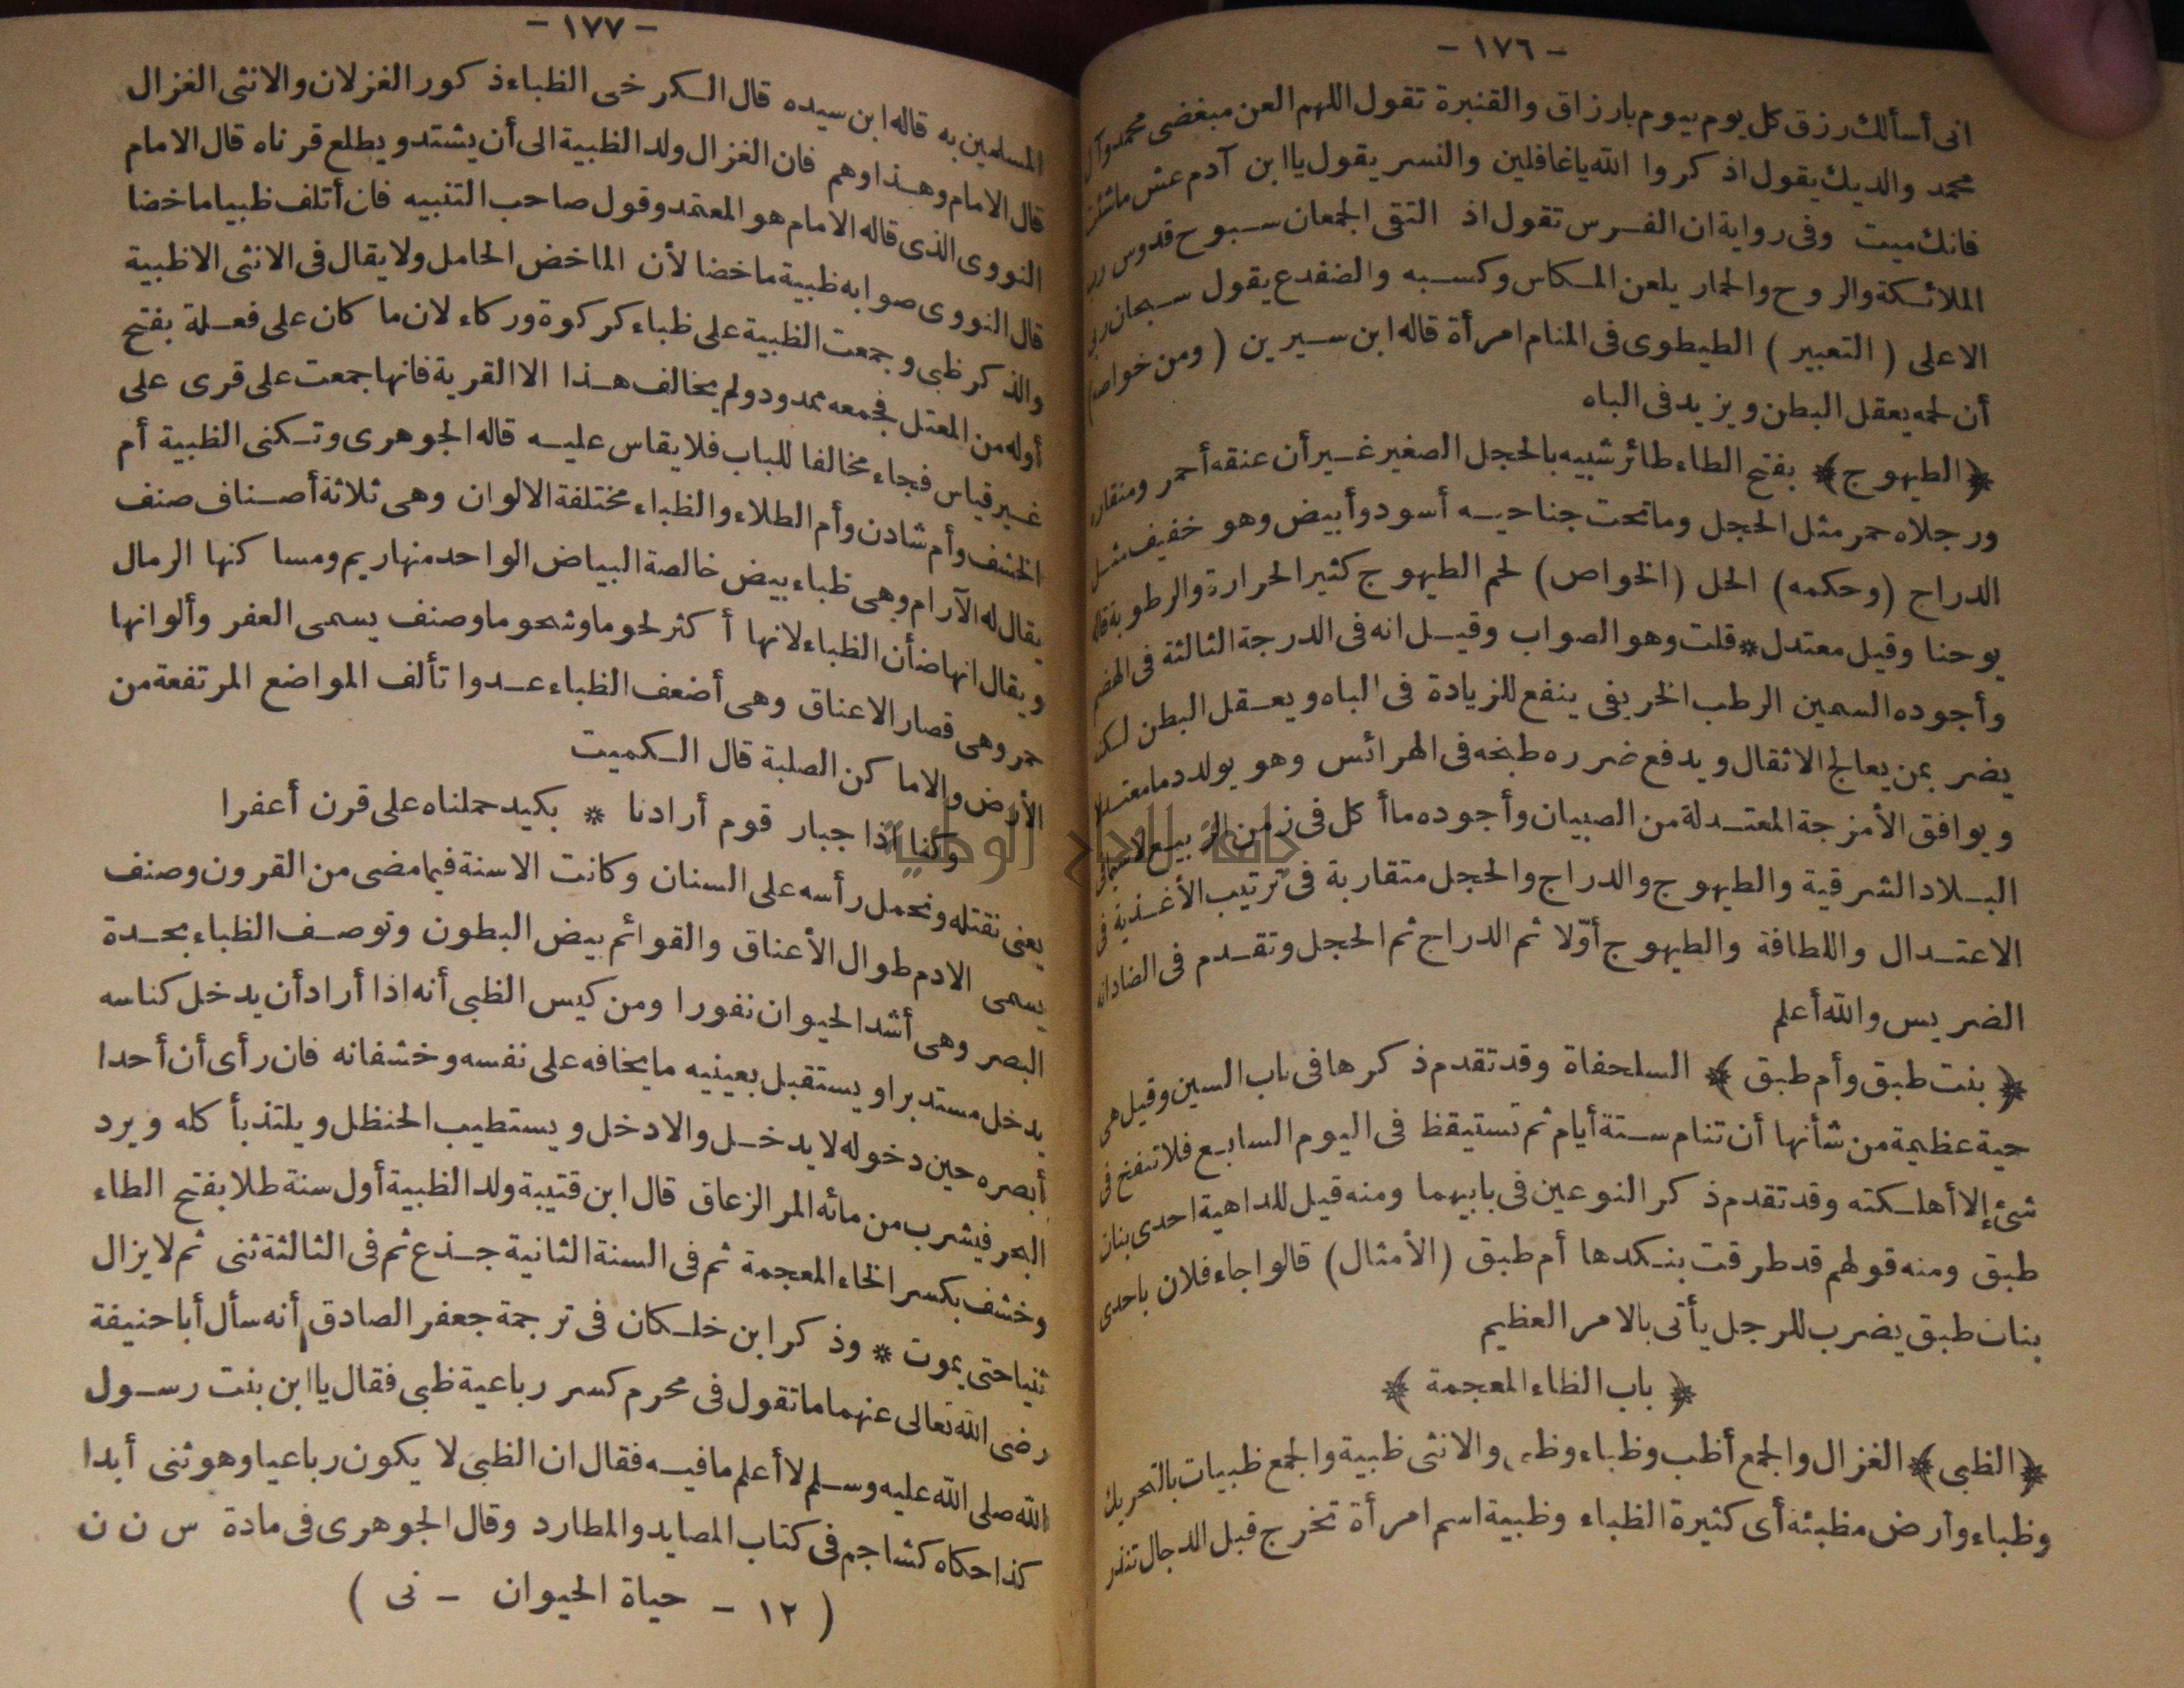 - ١٧٦ -
انى أسألك رزق كل يوم بيوم يارزاق والقنبرة تقول اللهم العن مبغضى محمد وآل
محمد والديك يقول اذكروا الله ياغافلين والنسر يقول ياابن آدم عش ماشئت
فانك ميت وفى رواية ان الفرس تقول اذ التقى الجمعان سبوح قدوس رب
الملائكة والروح والحمار يلعن المكاس وكسبه والضفدع يقول سبحان ربى
الاعلى ( التعبير ) الطيطوى فى المنام امرأة قاله ابن سيرين ( ومن خواصه )
أن لحمه يعقل البطن ويزيد فى الباه
﴿ الطيهوج ﴾ بفتح الطاء طائر شبيه بالحجل الصغير غير أن عنقه أحمر ومنقاره
ورجلاه حمر مثل الحجل وماتحت جناحيه أسود وأبيض وهو خفيف مثل
الدراج (وحكمه) الحل (الخواص) لحم الطيهوج كثير الحرارة والرطوبة قاله
يوحنا وقيل معتدل * قلت وهو الصواب وقيل انه فى الدرجة الثالثة فى الهضم
وأجوده السمين الرطب الخريفى ينفع للزيادة فى الباه ويعقل البطن لكنه
يضر بمن يعالج الاثقال ويدفع ضرره طبخه فى الهرائس وهو يولد دما معتدلا
ويوافق الأمزجة المعتدلة من الصبيان وأجوده ماأكل فى زمن الربيع لاسيما فى
البلاد الشرقية والطيهوج والدراج والحجل متقاربة فى ترتيب الأغذية فى
الاعتدال واللطافة والطيهوج أوّلا ثم الدراج ثم الحجل وتقدم فى الضاد انه
الضريس والله أعلم
﴿ بنت طبق وأم طبق ﴾ السلحفاة وقد تقدم ذكرها فى باب السين وقيل هى
حية عظيمة من شأنها أن تنام ستة أيام ثم تستيقظ فى اليوم السابع فلا تنفخ فى
شئ إلا أهلكته وقد تقدم ذكر النوعين فى بابيهما ومنه قيل للداهية احدى بنات
طبق ومنه قولهم قد طرقت بنكدها أم طبق (الأمثال) قالوا جاء فلان باحدى
بنات طبق يضرب للرجل يأتى بالامر العظيم
﴿ باب الظاء المعجمة ﴾
﴿ الظبى ﴾ الغزال والجمع أظب وظباء وظبى والانثى ظبية والجمع ظبيات بالتحريك
وظباء وأرض مظبئة أى كثيرة الظباء وظبية اسم امرأة تخرج قبل الدجال تنذر
- ١٧٧ -
المسلمين به قاله ابن سيده قال الكرخى الظباء ذكور الغزلان والانثى الغزال
قال الامام وهذا وهم فان الغزال ولد الظبية الى أن يشتد ويطلع قرناه قال الامام
النووى الذى قاله الامام هو المعتمد وقول صاحب التنبيه فان أتلف ظبيا ماخضا
قال النووى صوابه ظبية ماخضا لأن الماخض الحامل ولا يقال فى الانثى الا ظبية
والذكر ظبى وجمعت الظبية على ظباء كركوة وركاء لان ما كان على فعلة بفتح
أوله من المعتل فجمعه ممدود ولم يخالف هذا الا القرية فانها جمعت على قرى على
غير قياس فجاء مخالفا للباب فلا يقاس عليه قاله الجوهرى وتكنى الظبية أم
الخشف وأم شادن وأم الطلاء والظباء مختلفة الالوان وهى ثلاثة أصناف صنف
يقال له الآرام وهى ظباء بيض خالصة البياض الواحد منها ريم ومساكنها الرمال
ويقال انها ضأن الظباء لانها أكثر لحوما وشحوما وصنف يسمى العفر وألوانها
حمر وهى قصار الاعناق وهى أضعف الظباء عدوا تألف المواضع المرتفعة من
الأرض والاماكن الصلبة قال الكميت
وكنا اذا جبار قوم أرادنا * بكيد حملناه على قرن أعفرا
يعنى نقتله ونحمل رأسه على السنان وكانت الاسنة فيما مضى من القرون وصنف
يسمى الادم طوال الأعناق والقوائم بيض البطون وتوصف الظباء بحدة
البصر وهى أشد الحيوان نفورا ومن كيس الظبى أنه اذا أراد أن يدخل كناسه
يدخل مستدبرا ويستقبل بعينيه مايخافه على نفسه وخشفانه فان رأى أن أحدا
أبصره حين دخوله لا يدخل والا دخل ويستطيب الحنظل ويلتذ بأكله ويرد
البحر فيشرب من مائه المر الزعاق قال ابن قتيبة ولد الظبية أول سنة طلا بفتح الطاء
وخشف بكسر الخاء المعجمة ثم فى السنة الثانية جذع ثم فى الثالثة ثنى ثم لا يزال
ثنيا حتى يموت * وذكر ابن خلكان فى ترجمة جعفر الصادق أنه سأل أبا حنيفة
رضى الله تعالى عنهما ماتقول فى محرم كسر رباعية ظبى فقال ياابن بنت رسول
الله صلى الله عليه وسلم لا أعلم مافيه فقال ان الظبى لا يكون رباعيا وهو ثنى أبدا
كذا حكاه كشاجم فى كتاب المصايد والمطارد وقال الجوهرى فى مادة س ن ن
( ١٢ - حياة الحيوان - نى )
جامعة النجاح الوطنية